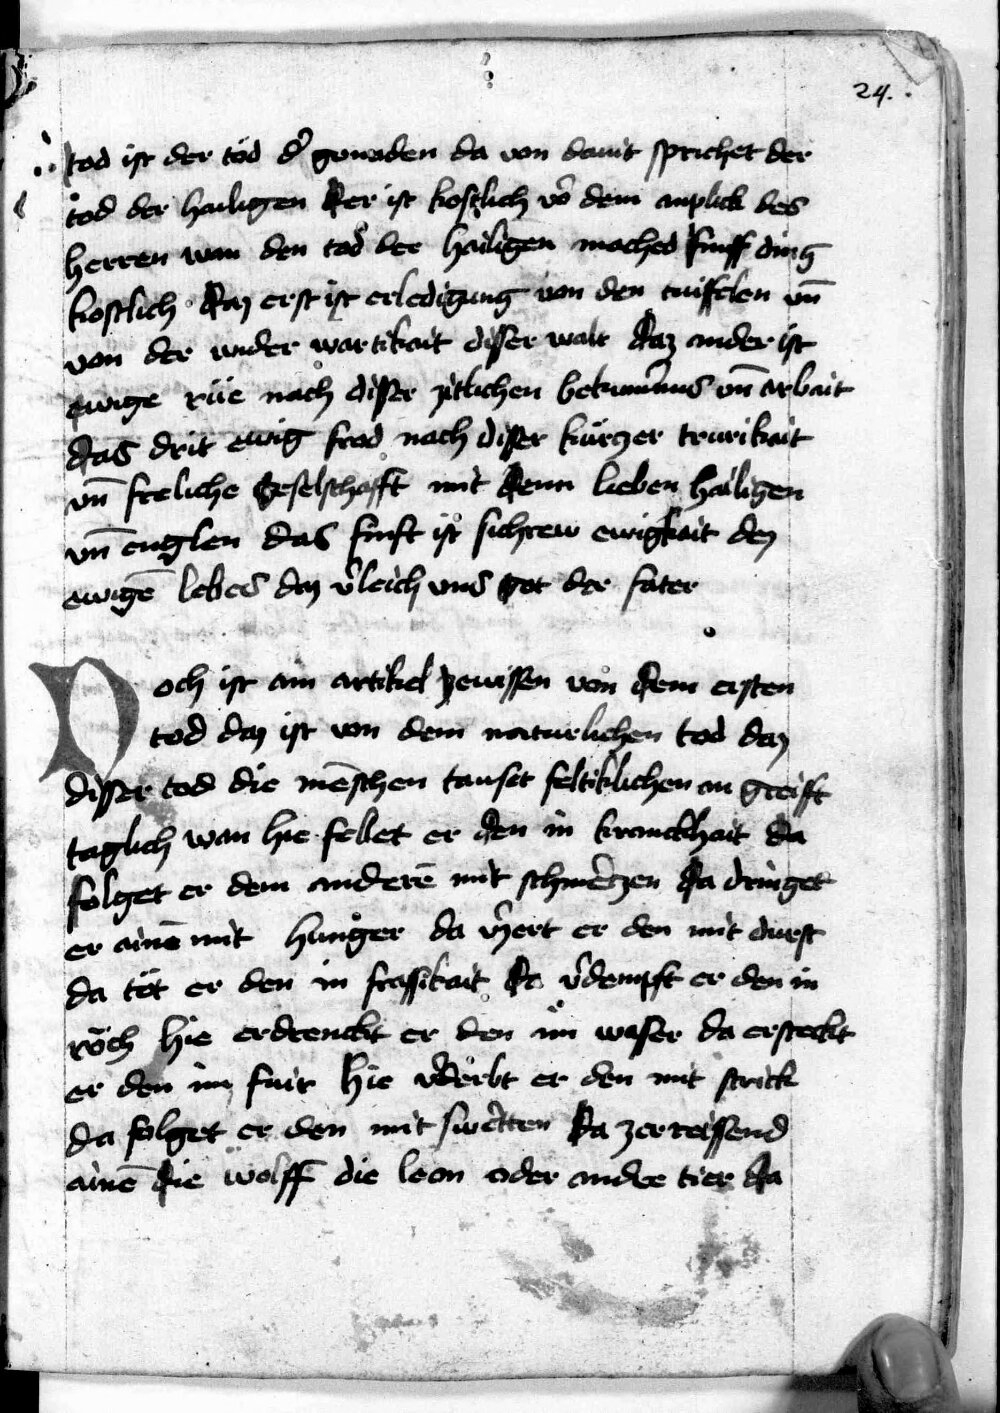 24.
tod ist der tod d' gnaden da von dauit sprichet der
tod der hailigen der ist kostlich vo dem anplick des
herren wan den tod der hailigen mached funff ding
kostlich Daz erst ist erledigung von den tuiffelen vn̄
von der wider wartikait disser walt Daz ander ist
ewige rüe nach disser zitlichen bekumernus vn̄ arbait
das drit ewig frod nach disser kurczer trurikait
vn̄ freliche geselschafft mit denn lieben hailigen
vn̄ englen das funft ist sichrew ewigkait dez
ewigē lebes daz v'leich vns got der fater
Noch ist ain artikel zewissen von dem ersten
tod daz ist von dem naturlichen tod daz
disser tod die mēschen tauset feltiklichen an greifft
taglich wan hie fellet er den in kranckhait da
folget er dem anderē mit schmerczen da dringet
er ainē mit hunger da v'zert er den mit durst
da töt er den in frassikait da v'dempft er den in
röch hie erdrenckt er den im waser da ersteckt
er den im fuir hie v'derbt er den mit strick
da folget er den mit swertten Da zerreissend
ainē die wolff die leon oder andre tier da